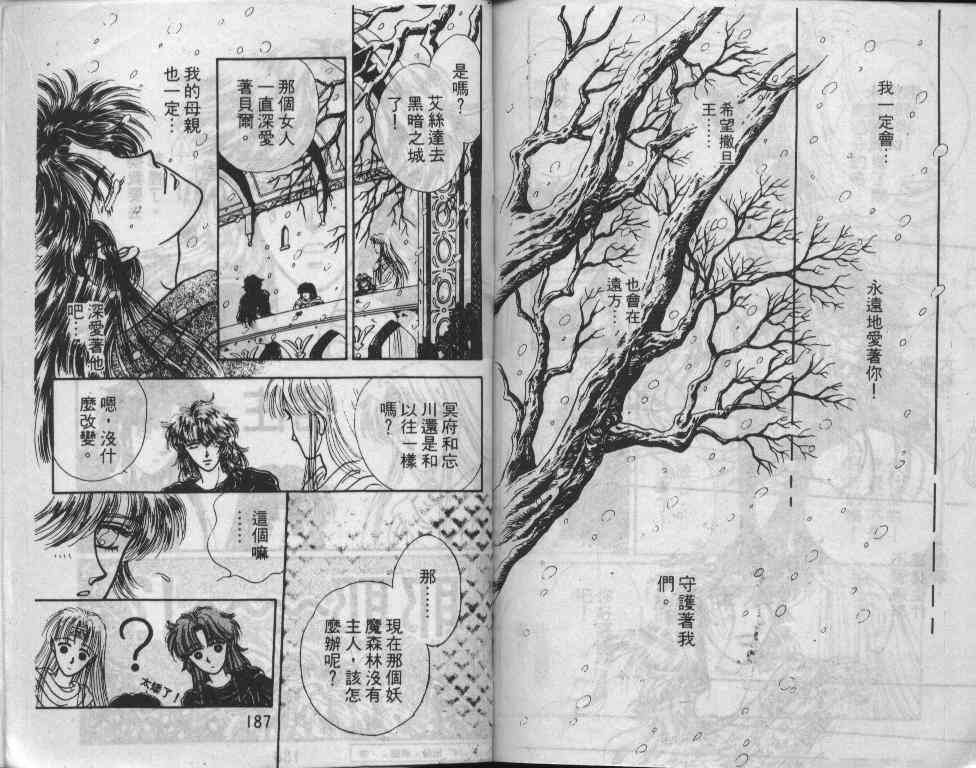 我一定會…
永遠地愛著你！
希望撒旦
王……
也會在
遠方…
守護著我
們。
是嗎？
艾絲達去
黑暗之城
了！
那個女人
一直深愛
著貝爾。
我的母親
也一定…
深愛著他
吧…
冥府和忘
川還是和
以往一樣
嗎？
嗯，沒什
麼改變。
這個嘛
……
那……
現在那個妖
魔森林沒有
主人，該怎
麼辦呢？
？
太慘了！
187